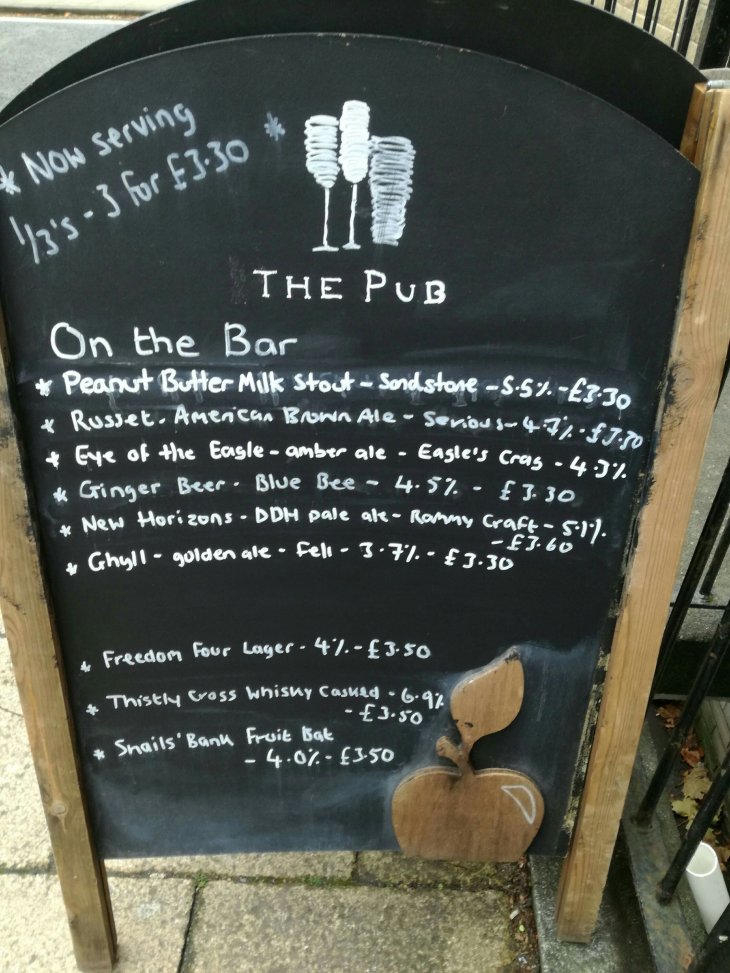 * Now serving *
1/3's - 3 for £3.30
THE PUB
On the Bar
* Peanut Butter Milk Stout - Sandstone - 5.5% - £3.30
* Russet. American Brown Ale - Serious - 4.7% - £3.30
* Eye of the Eagle - amber ale - Eagle's Crag - 4.3%
* Ginger Beer - Blue Bee - 4.5% - £3.30
* New Horizons - DDH pale ale - Rammy Craft - 5.1%
- £3.60
* Ghyll - golden ale - Fell - 3.7% - £3.30
* Freedom Four Lager - 4% - £3.50
* Thistly Cross Whisky Casked - 6.9%
- £3.50
* Snails' Bank Fruit Bat
- 4.0% - £3.50